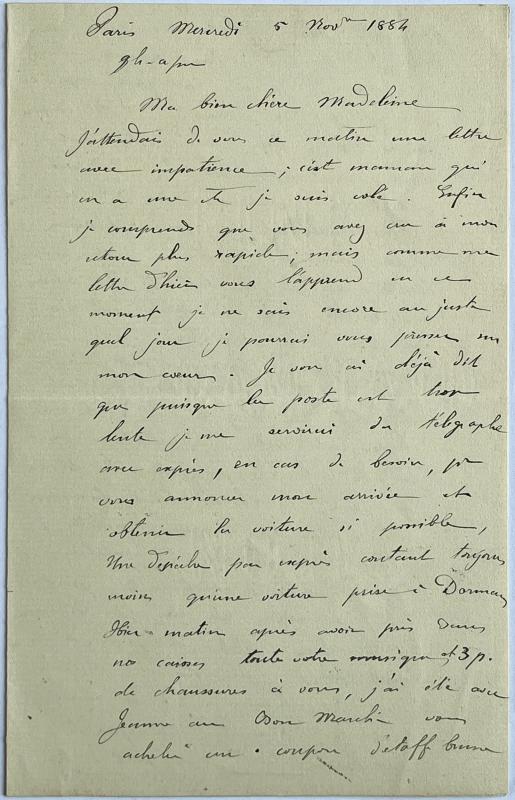 Paris Mercredi 5 Nov^bre 1884
9h - a pm
Ma bien chère Madeleine
J'attendais de vous ce matin une lettre
avec impatience ; c'est maman qui
en a une et je suis volé. Enfin
je comprends que vous avez cru à mon
retour plus rapide ; mais comme ma
lettre d'hier vous l'apprend en ce
moment je ne sais encore au juste
quel jour je pourrai vous presser sur
mon cœur. Je vous ai déjà dit
que puisque la poste est trop
lente je me servirai du télégraphe
avec exprès, en cas de besoin, pr
vous annoncer mon arrivée et
obtenir la voiture si possible,
Une dépêche par exprès coutant toujours
moins qu'une voiture prise à Dormans
Hier matin après avoir pris dans
nos caisses toute votre musique et 3 p.
de chaussures à vous, j'ai été avec
Jeanne au Bon Marché vous
acheter un coupon d'étoffe brune